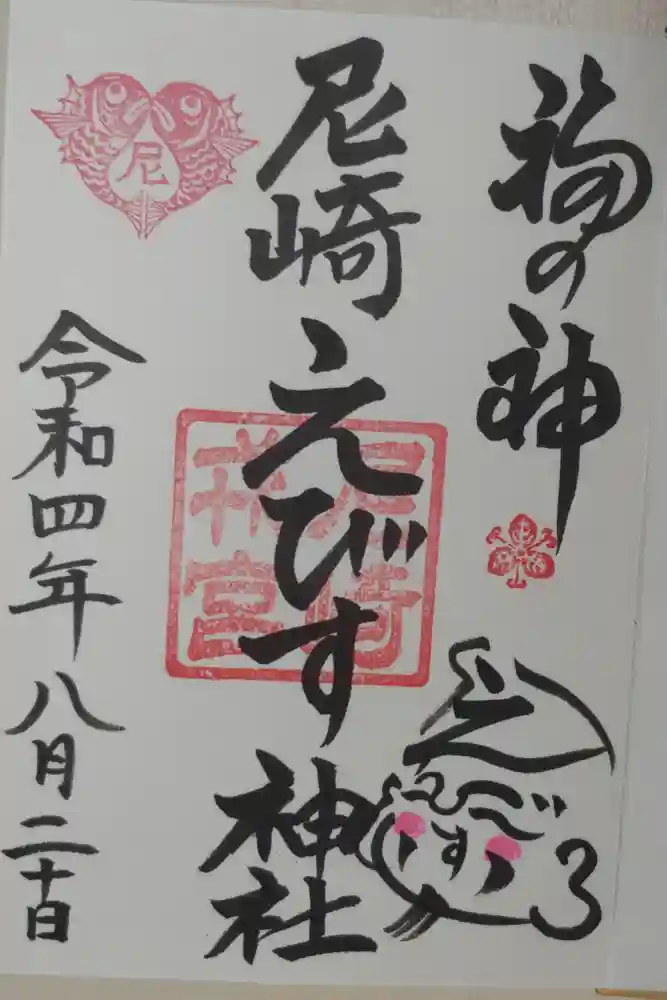 福の神
えびす
尼崎えびす神社
尼崎
戎宮
尼
令和四年八月二十日